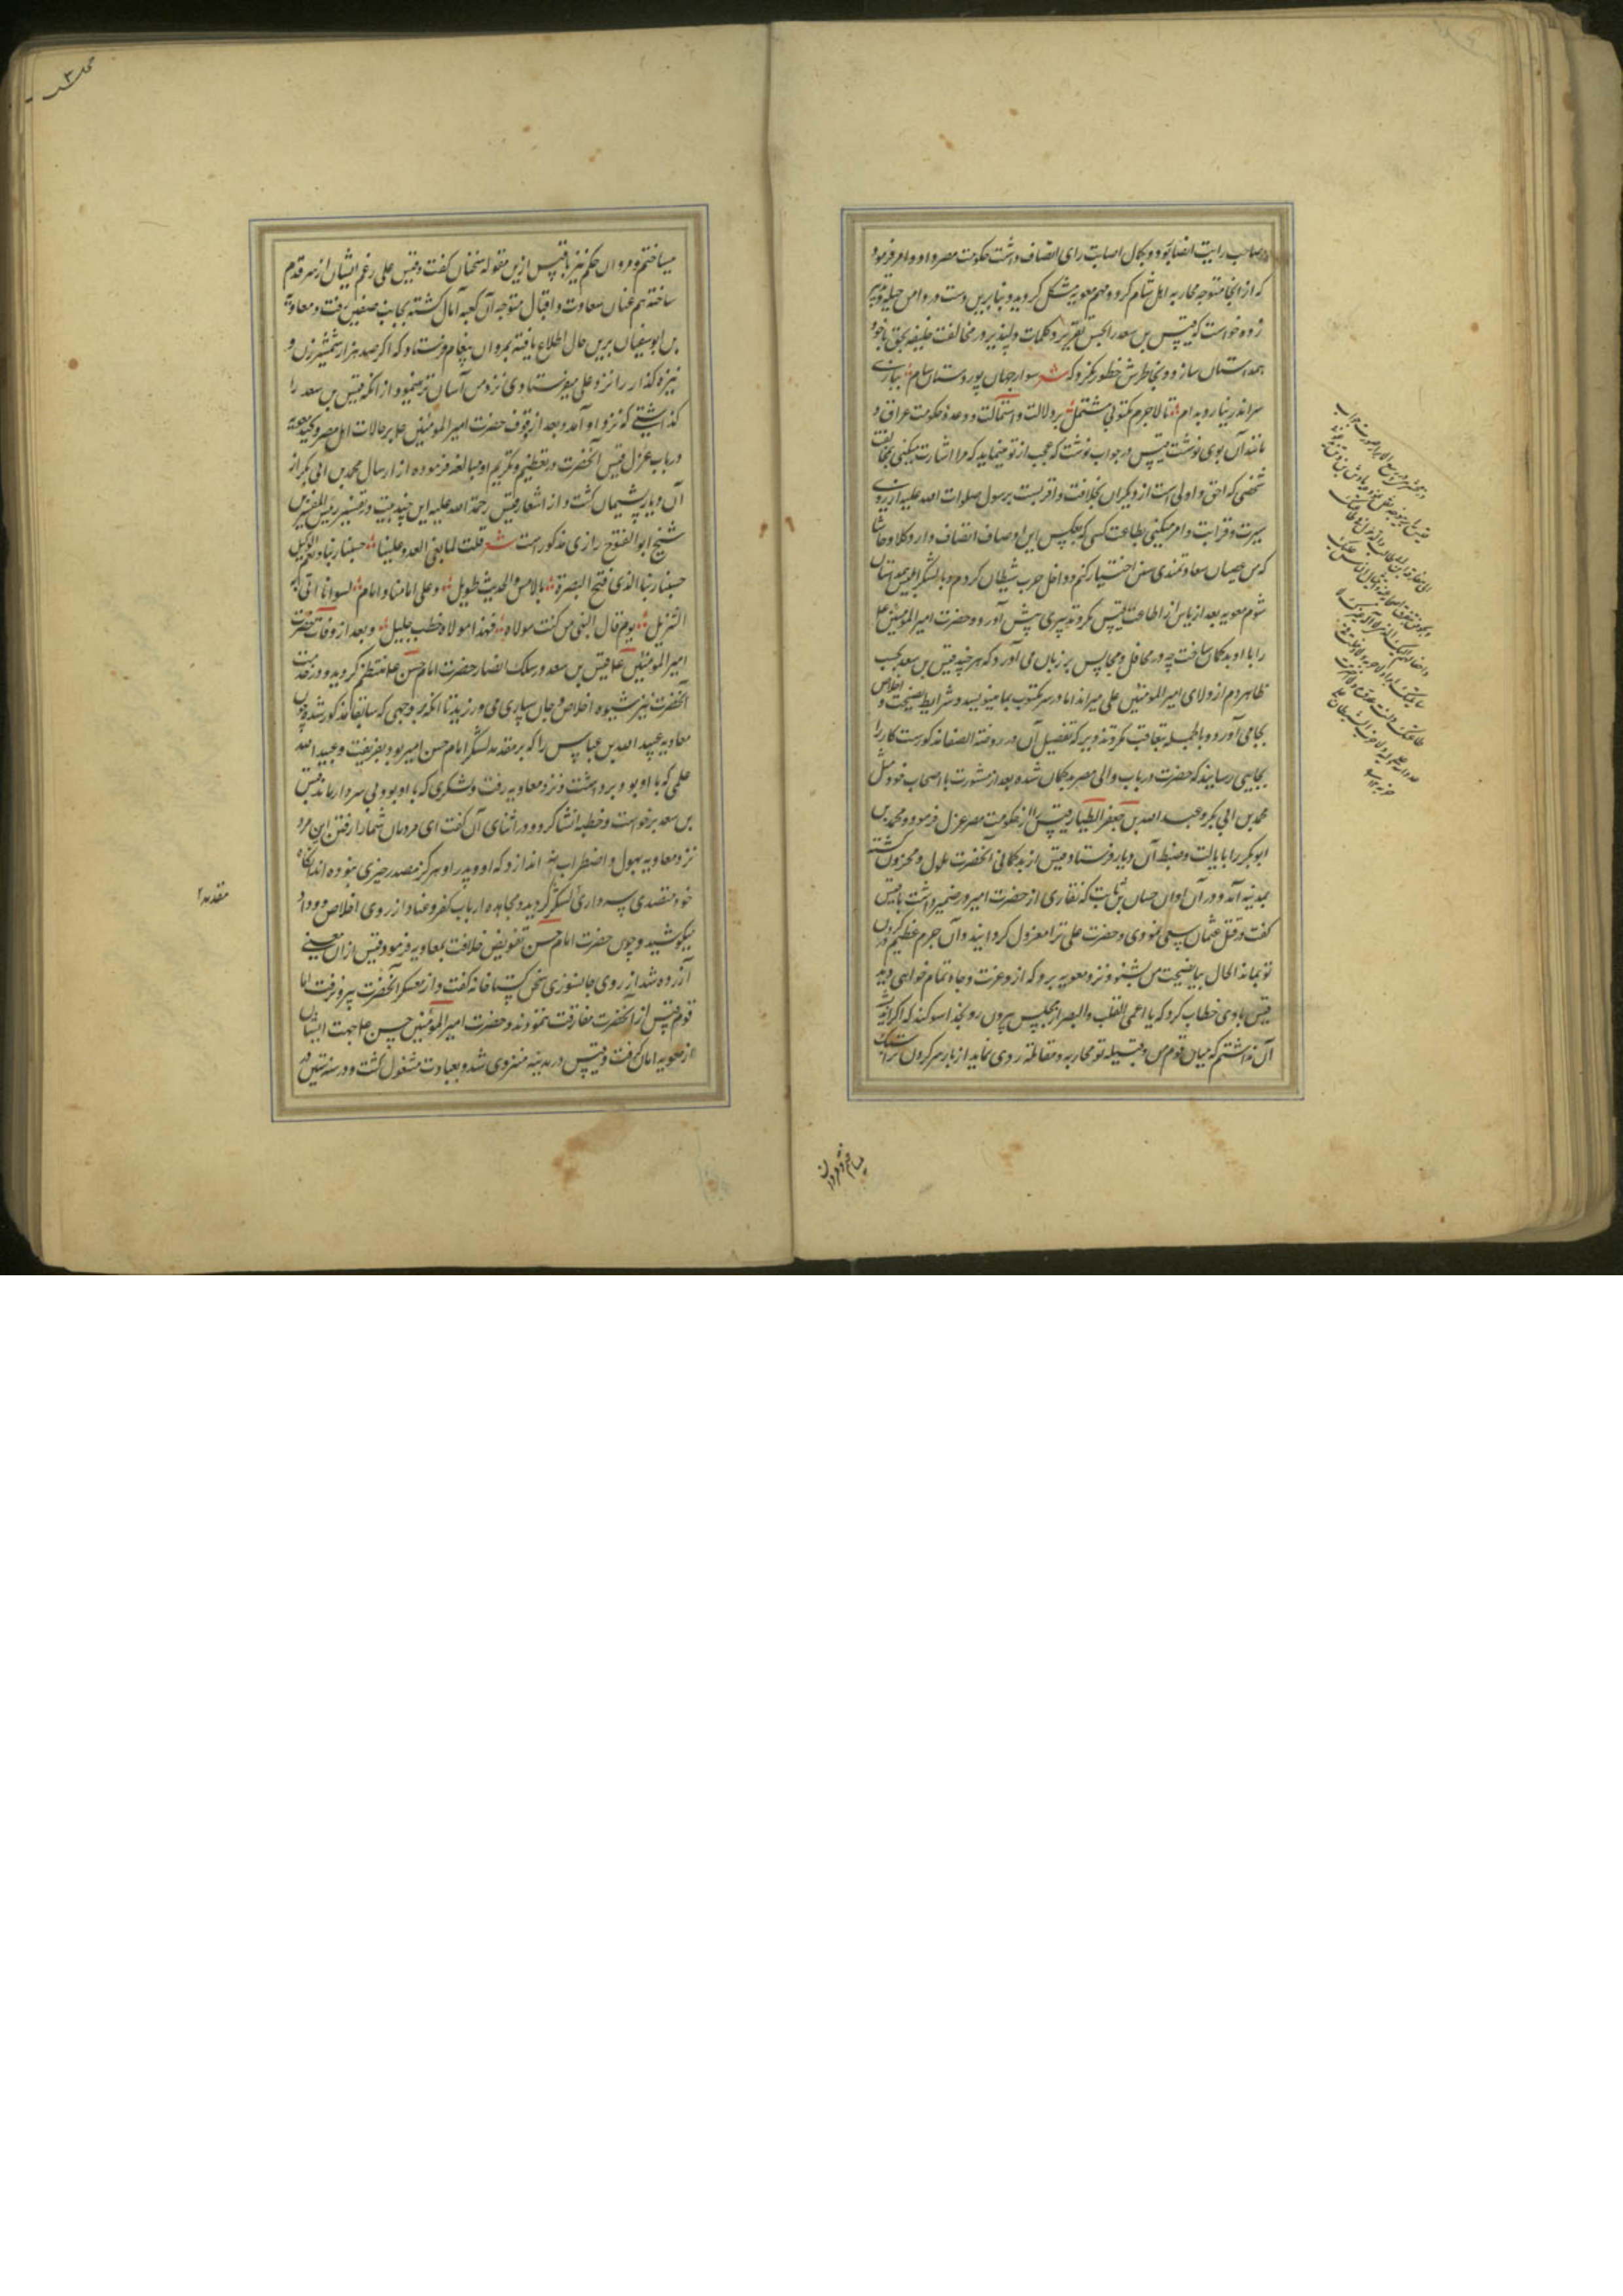 صاحب رایت انصار بود و بکمال اصابت رای اتصاف داشت حکومت مصر داد و امر فرمود
که از آنجا متوجه محاربه اهل شام کردد و مهم معویه مشکل کردید و بنابرین دست در دامن حیله و تدبیر
زده خواست که قیس بن سعد را بحسن تقریر و کلمات دلپذیر در مخالفت خلیفه بحق با خود
همداستان سازد و بخاطرش خطور نکرد که شعر سوار جهان پور دستان سام بیازی
سر اندر نیارد بدام تا لاجرم مکتوبی مشتمل بر دلالت و استمالت و وعده حکومت عراق و
مانند آن بوی نوشت قیس در جواب نوشت که عجب از تو مینماید که مرا اشارت میکنی بمخالفت
شخصی که احق و اولی است از دیکران بخلافت و اقربست برسول صلوات الله علیه از روی
سیرت و قرابت و امر میکنی بطاعت کسی که هیچکس این اوصاف اتصاف دارد کلا و حاشا
که من عصیان سعادتمندی مثل اختیار کنم و داخل حرب شیطان کردم و بالشکر ابلیس همداستان
شوم معویه بعد از یاس از اطاعت قیس مکر و تدبیری پیش آورد و حضرت امیر المومنین علی
را با او بدکمان ساخت چه در محافل و مجالس بر زبان می آورد که هر چند قیس بن سعد بحسب
ظاهر دم از ولای امیر المومنین علی میزند اما در سر مکتوب بما مینویسد و شرایط نصیحت و اخلاص
بجا می آورد و بالجمله بتعاقب مکر و تزویر که تفصیل آن در روضة الصفا مذکورست کار را
بجایی رسانید که حضرت در باب والی مصر بدکمان شده بعد از مشورت با اصحاب خود مثل
محمد بن ابی بکر و عبد الله بن جعفر الطیار قیس را از حکومت مصر عزل فرمود و محمد بن
ابو بکر را بایالت و ضبط آن دیار فرستاد و قیس از بدکمانی آنحضرت ملول و محزون کشته
بمدینه آمد و در آن اوان حسان بن ثابت که نقاری از حضرت امیر در ضمیر داشت با قیس
کفت در قتل عثمان سعی نمودی و حضرت علی ترا معزول کردانید و آن جرم عظیم در کردن
تو بماند الحال بیا نصیحت من بشنو و نزد معویه برو که ازو عزت و جاه تمام خواهی دید
قیس با وی خطاب کرد که یا اعمی القلب والبصر از مجلس بیرون رو بخدا سوکند که اکر اندیشه
آن نداشتم که میان قوم من و قبیله تو محاربه و مقاتله روی نماید از بار سر کردن ترا سبک
میساختم و مروان
میساختم و مروان حکم نیز با قیس ازین مقوله سخنان کفت و قیس علی رغم ایشان از سر قدم
ساخته هم عنان سعادت و اقبال متوجه آن کعبه آمال کشته بجانب صفین رفت و معاویه
بن ابوسفیان برین حال اطلاع یافته بمروان پیغام فرستاد که اکر صد هزار شمشیر زن و
نیزه کذار را نزد علی میفرستادی نزد من آسان تر مینمود از آنکه قیس بن سعد را
کذاشتی که نزد او آمد و بعد از وقوف حضرت امیر المومنین علی بر حالات اهل مصر و کید معویه
در باب عزل قیس آنحضرت در تعظیم و تکریم او مبالغه فرموده از ارسال محمد بن ابی بکر از
آن دیار پشیمان کشت و از اشعار قیس رحمة الله علیه این چند بیت در تفسیر رئیس المفسرین
شیخ ابو الفتوح رازی مذکورست شعر قلت لما بغی العدو علینا حسبنا ربنا و نعم الوکیل
حسبنا ربنا الذی فتح البصرة بالامس والحدیث طویل و علی امامنا و امام لسوانا اتی به
التنزیل یوم قال النبی من کنت مولاه فهذا مولاه خطب جلیل و بعد از وفات حضرت
امیر المومنین علی قیس بن سعد در سلک انصار حضرت امام حسن علا منتظم کردید و در خدمت
آنحضرت نیز شیوه اخلاص و جان سپاری می ورزید تا آنکه بر وجهی که سابقا مذکور شده چون
معاویه عبید الله بن عباس را که بر مقدمه لشکر امام حسن امیر بود بفریفت و عبید الله
علمی که با او بود برداشت و نزد معاویه رفت و لشکری که با او بود بی سردار ماند قیس
بن سعد برخواست و خطبه انشا کرد و در اثنای آن کفت ای مردمان شما را رفتن این مرد
نزد معاویه بهول و اضطراب نیندازد که او و پدر او هرکز مصدر خیری نبوده اند آنکاه
خود متصدی سرداری لشکر کردید و مجاهده ارباب کفر و عناد از روی اخلاص و وداد
میکوشید و چون حضرت امام حسن تفویض خلافت بمعاویه فرمود قیس از آن معنی
آزرده شد از روی جانسوزی سخن کستاخانه کفت و از معسکر آنحضرت بیرون رفت اما
قوم قیس از آنحضرت مفارقت ننمودند و حضرت امیر المومنین حسن علا جهت ایشان
از معویه امان کرفت و قیس در مدینه منزوی شد و بعبادت مشغول کشت و در سنه ستین